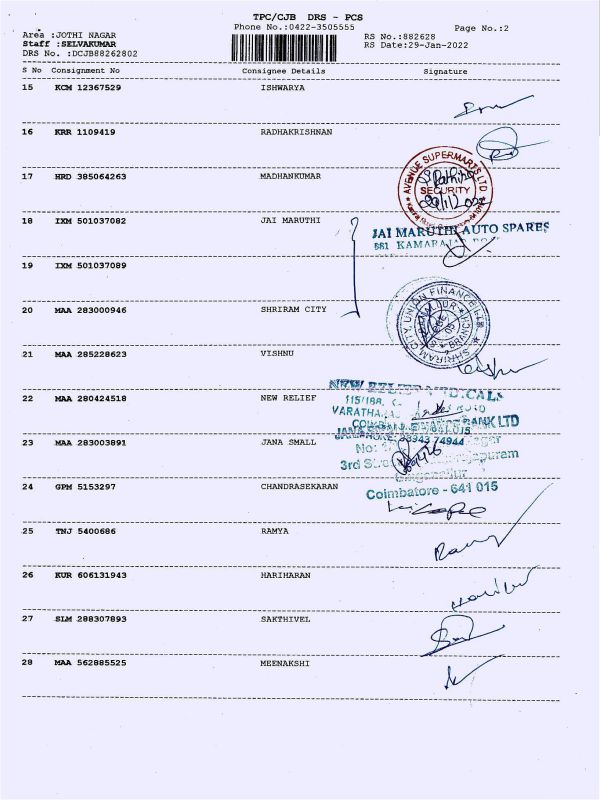 TPC/CJB DRS - PCS
Phone No.:0422-3505555
Page No.:2
Area :JOTHI NAGAR
Staff :SELVAKUMAR
DRS No. :DCJB88262802
RS No.:882628
RS Date:29-Jan-2022
S No Consignment No Consignee Details Signature
15 KCM 12367529 ISHWARYA
16 KRR 1109419 RADHAKRISHNAN
17 HRD 385064263 MADHANKUMAR
AVENUE SUPERMARTS LTD
SECURITY
18 IXM 501037082 JAI MARUTHI
JAI MARUTHI AUTO SPARES
881 KAMARAJAR
19 IXM 501037089
20 MAA 283000946 SHRIRAM CITY
SHRIRAM CITY UNION FINANCE LTD
BRANCH
21 MAA 285228623 VISHNU
22 MAA 280424518 NEW RELIEF
NEW RELIEF MEDICALS
115/18A,
VARATHA
23 MAA 283003891 JANA SMALL
BANK LTD
74944
No:
3rd
Coimbatore - 641 015
24 GPM 5153297 CHANDRASEKARAN
25 TNJ 5400686 RAMYA
Ramy
26 KUR 606131943 HARIHARAN
27 SLM 288307893 SAKTHIVEL
28 MAA 562885525 MEENAKSHI